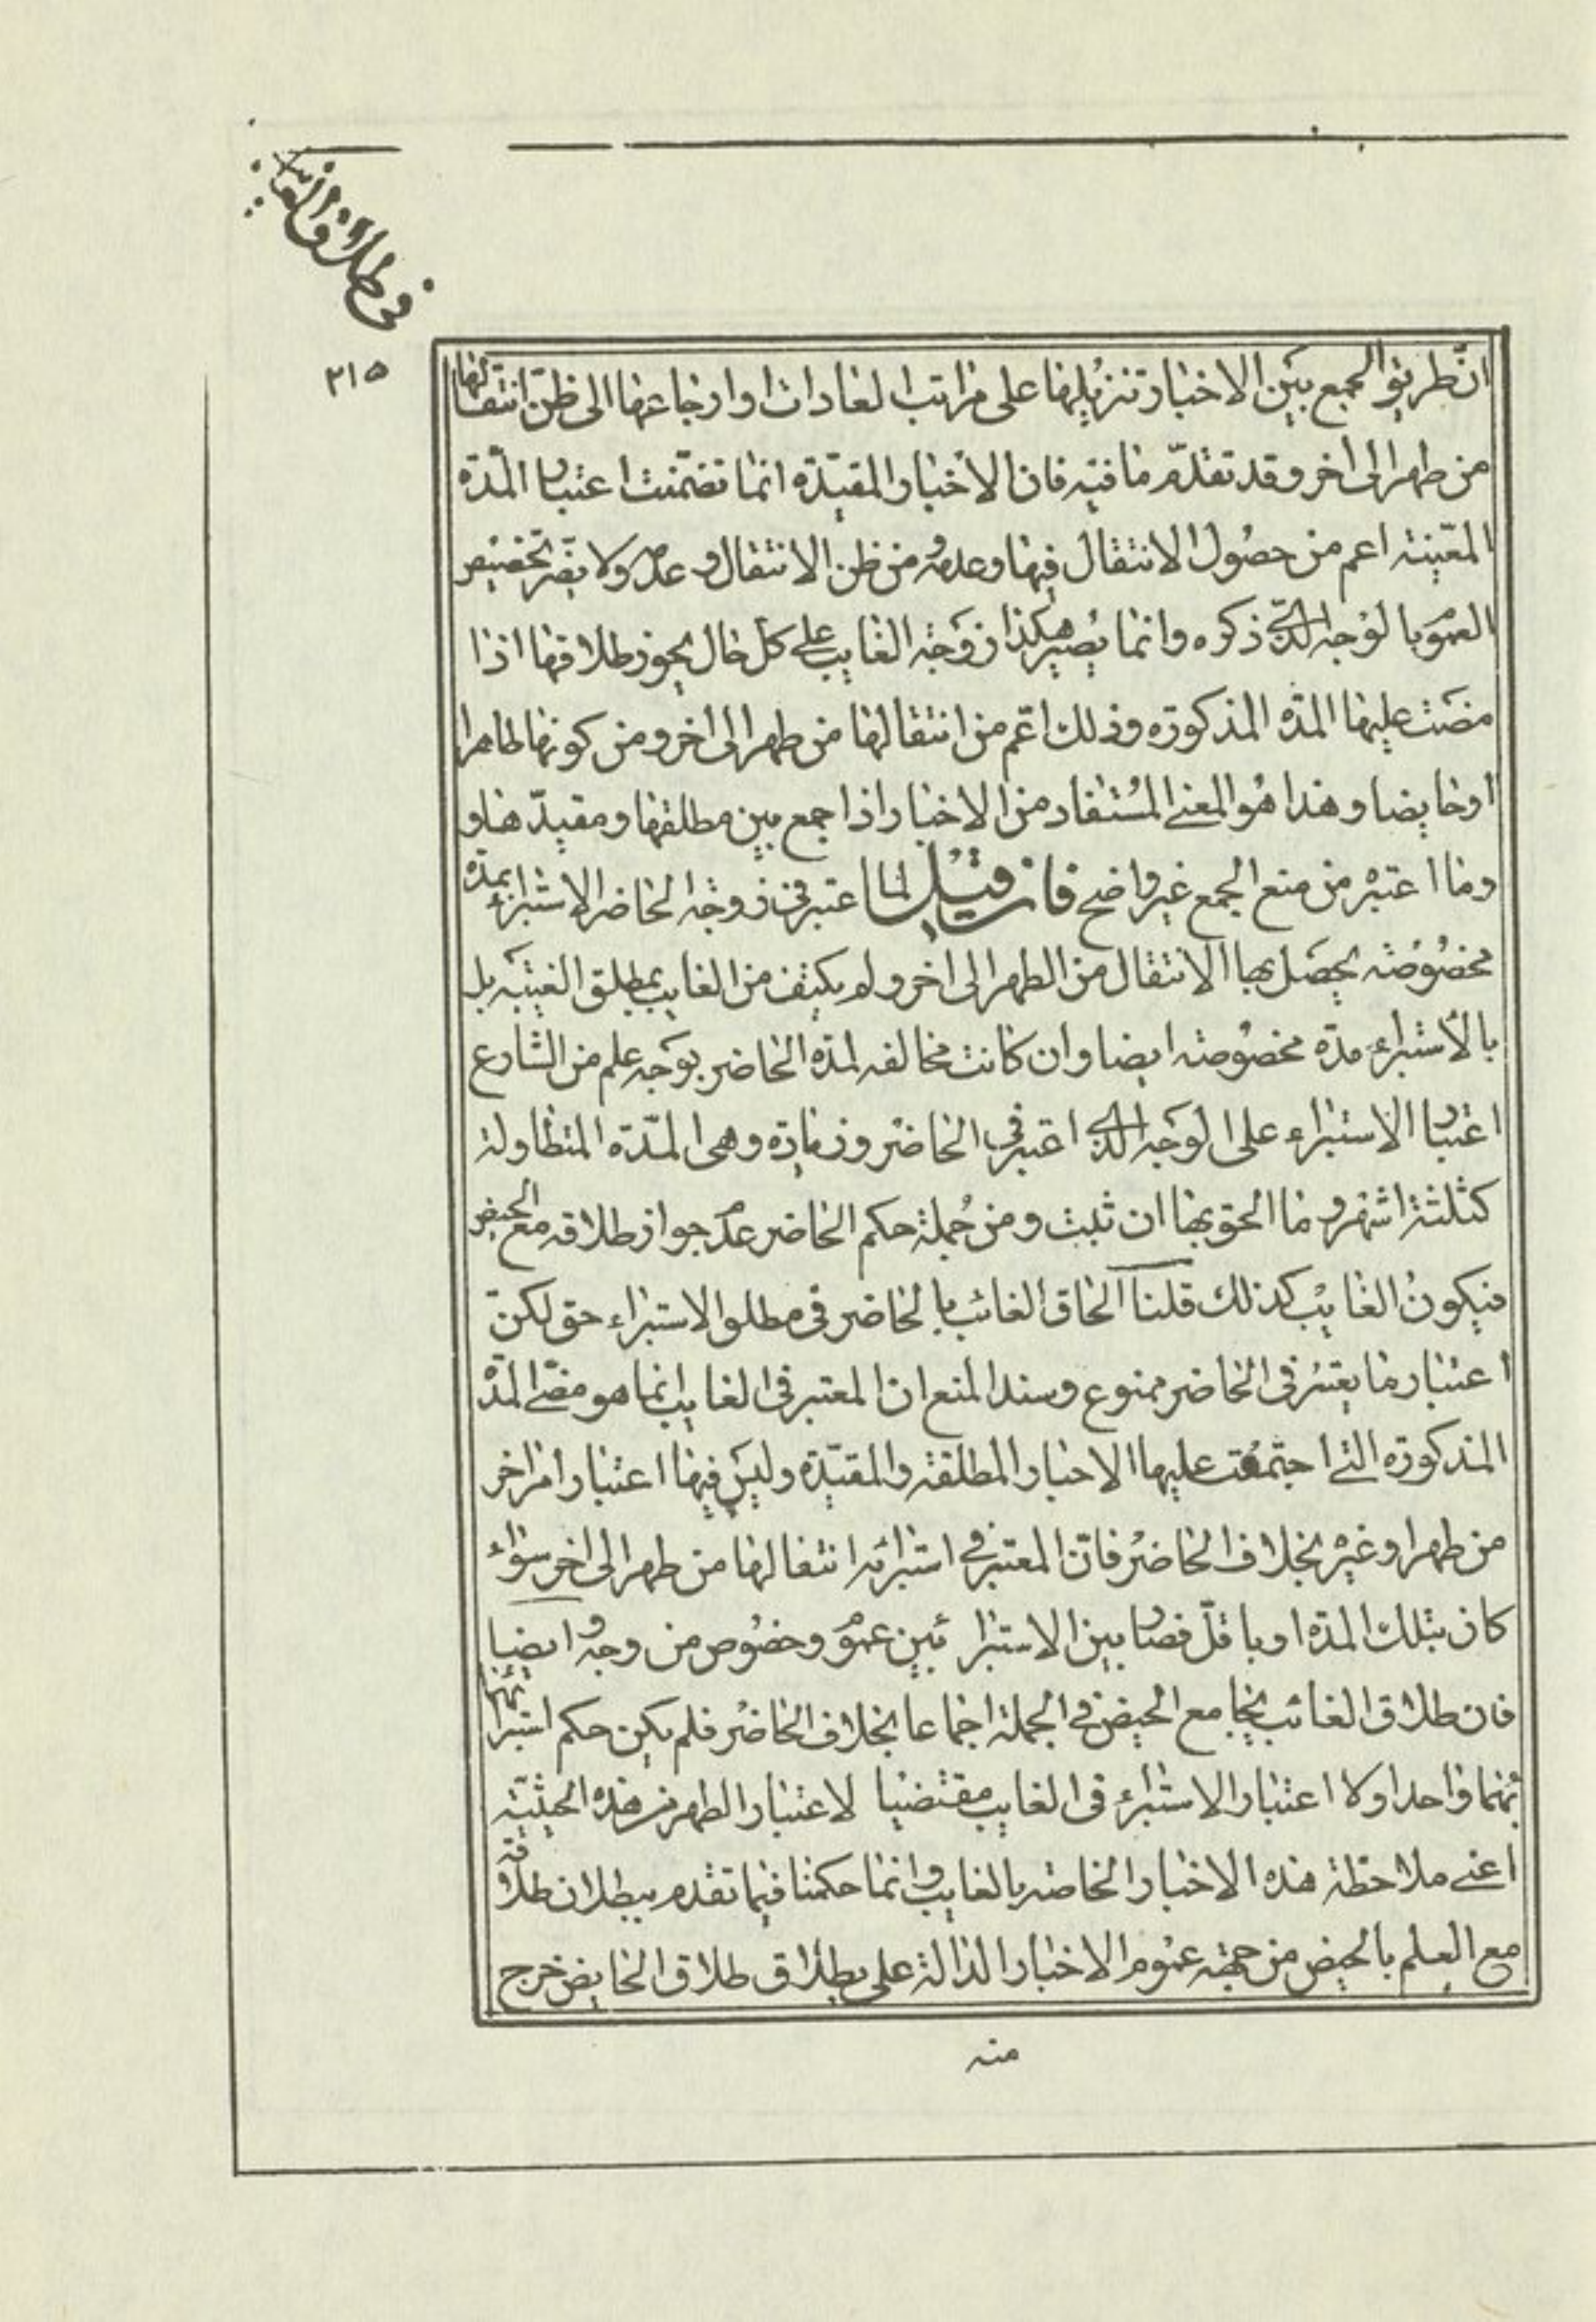 في طلاق الغايب
٣١٥
ان طريق الجمع بين الاخبار تنزيلها على مراتب العادات او ارجاعها الى ظن انتقالها
من طهر الى اخر وقد تقدم ما فيه فان الاخبار المقيدة انما تضمنت اعتبار المدة
المعينة اعم من حصول الانتقال فيها وعدمه ومن ظن الانتقال وعدمه ولا يضر تخصيص
العموم بالوجه الذي ذكره وانما يصير هكذا زوجة الغايب على كل حال يجوز طلاقها اذا
مضت عليها المدة المذكورة وذلك اعم من انتقالها من طهر الى اخر ومن كونها طاهرا
او حايضا وهذا هو المعنى المستفاد من الاخبار اذا جمع بين مطلقها ومقيدها و
وما اعتبره من منع الجمع غير واضح فان قيل لما اعتبر في زوجة الحاضر الاستبراء بمدة
مخصوصة يحصل بها الانتقال من الطهر الى اخر ولم يكتف من الغايب بمطلق الغيبة بل
بالاستبراء مدة مخصوصة ايضا وان كانت مخالفة لمدة الحاضر بوجه علم من الشارع
اعتبار الاستبراء على الوجه الذي اعتبر في الحاضر وزيادة وهي المدة المتطاولة
كثلثة اشهر وما الحق بها ان ثبت ومن جملة حكم الحاضر عدم جواز طلاقه مع الحيض
فيكون الغايب كذلك قلنا الحاق الغائب بالحاضر في مطلق الاستبراء حق لكن
اعتبار ما يعتبر في الحاضر ممنوع وسند المنع ان المعتبر في الغايب انما هو مضي المدة
المذكورة التي اجتمعت عليها الاخبار المطلقة والمقيدة وليس فيها اعتبار امر اخر
من طهر او غيره بخلاف الحاضر فان المعتبر في استبرائه انتقالها من طهر الى اخر سواء
كان بتلك المدة او باقل فصار بين الاستبرا ئين عموم وخصوص من وجه وايضا
فان طلاق الغائب يجامع الحيض في الجملة اجماعا بخلاف الحاضر فلم يكن حكم استبرائهما
بمنهما واحدا ولا اعتبار الاستبراء في الغايب مقتضيا لاعتبار الطهر من هذه الحيثية
اعني ملاحظة هذه الاخبار الخاصة بالغايب وانما حكمنا فيما تقدم ببطلان طلاقه
مع العلم بالحيض من جهة عموم الاخبار الدالة على بطلاق طلاق الحايض خرج
منه